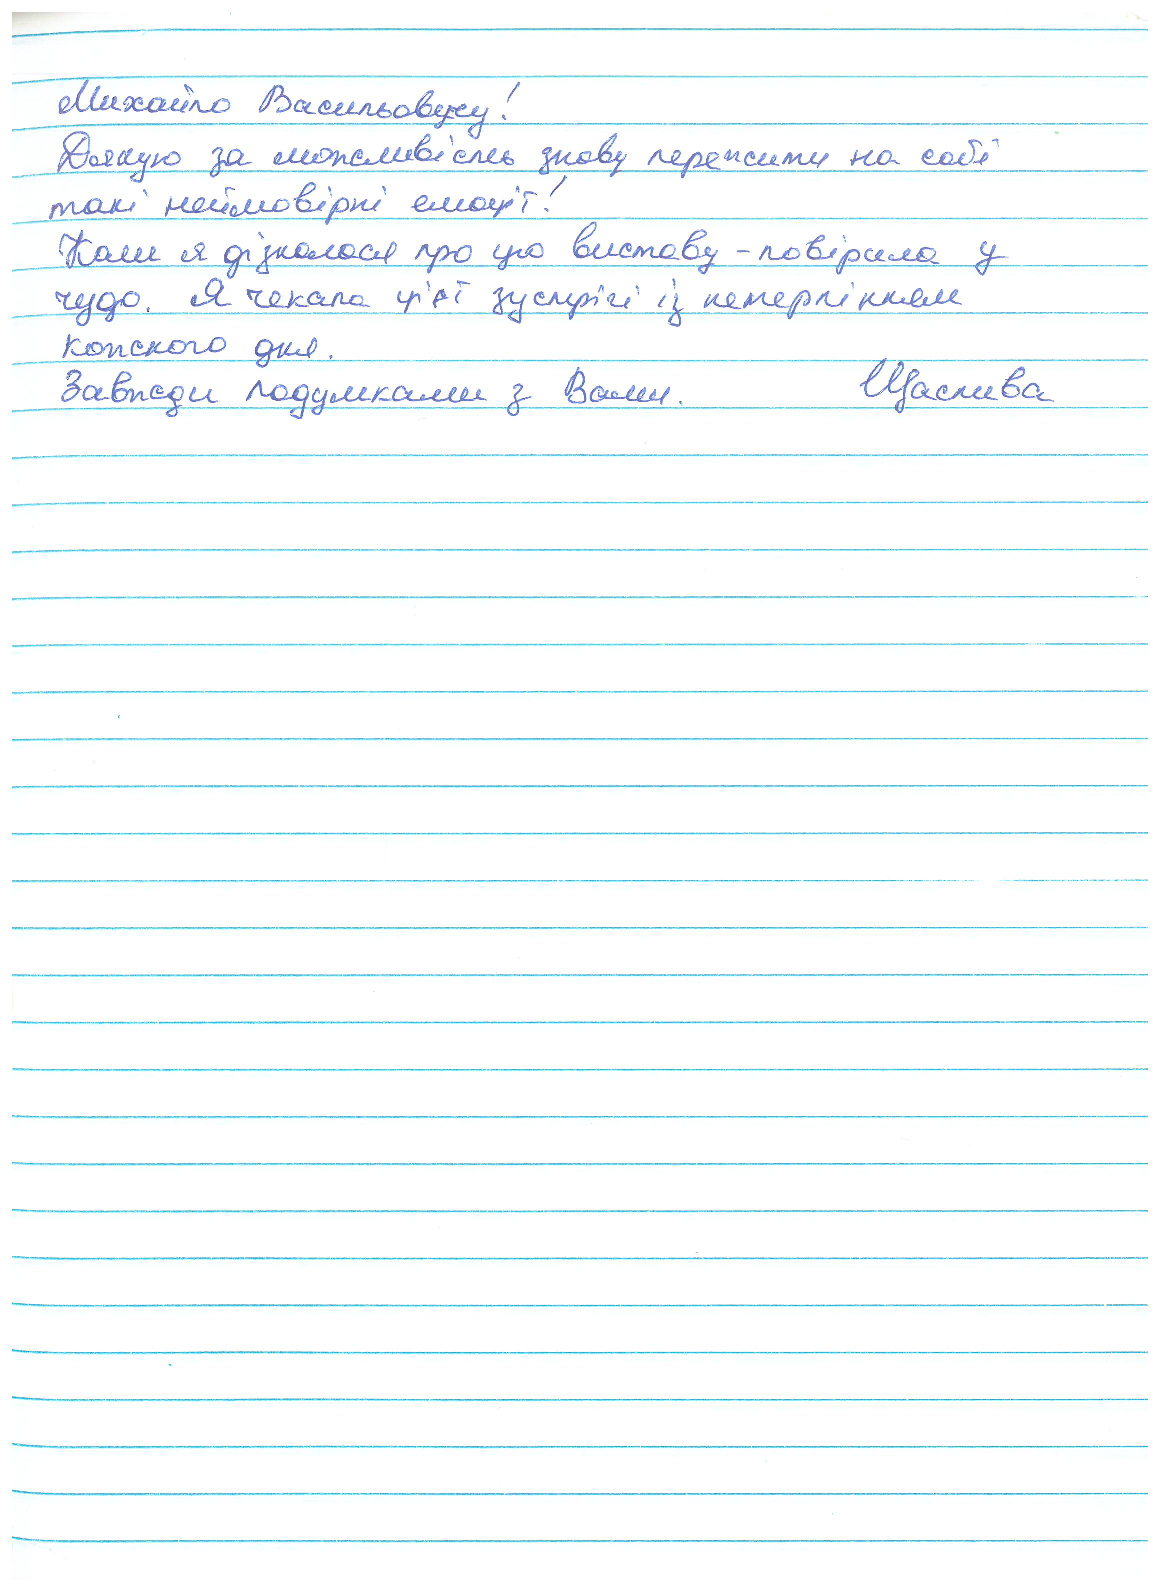 Михайло Васильовичу!
Дякую за можливість знову пережити на собі
такі неймовірні емоції!
Коли я дізналася про цю виставу - повірила у
чудо. Я чекала цієї зустрічі із нетерпінням
кожного дня.
Завжди подумками з Вами. Щаслива